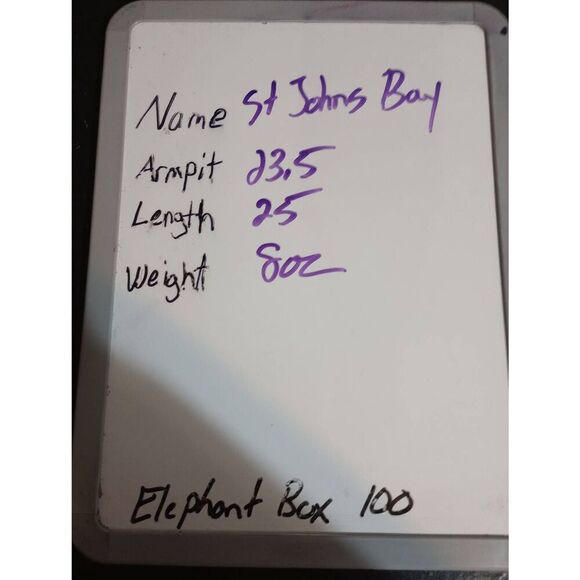 Name St Johns Bay
Armpit 23.5
Length 25
Weight 8oz
Elephant Box 100